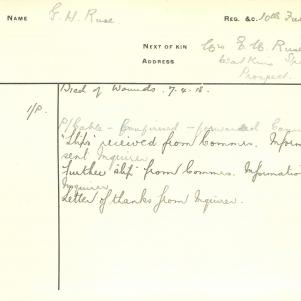 NAME G. H. Ruse REG. &C. 10th
NEXT OF KIN Mrs E. H. Ruse
ADDRESS Watkins
Prospect.
Died of Wounds. 7.4.18.
1/P. P/Cable - Confirmed - forwarded
"Slip" received from Commrs. Inform
sent Inquirer
Further "slip" from Commrs. Information
Inquirer
Letter of thanks from Inquirer.